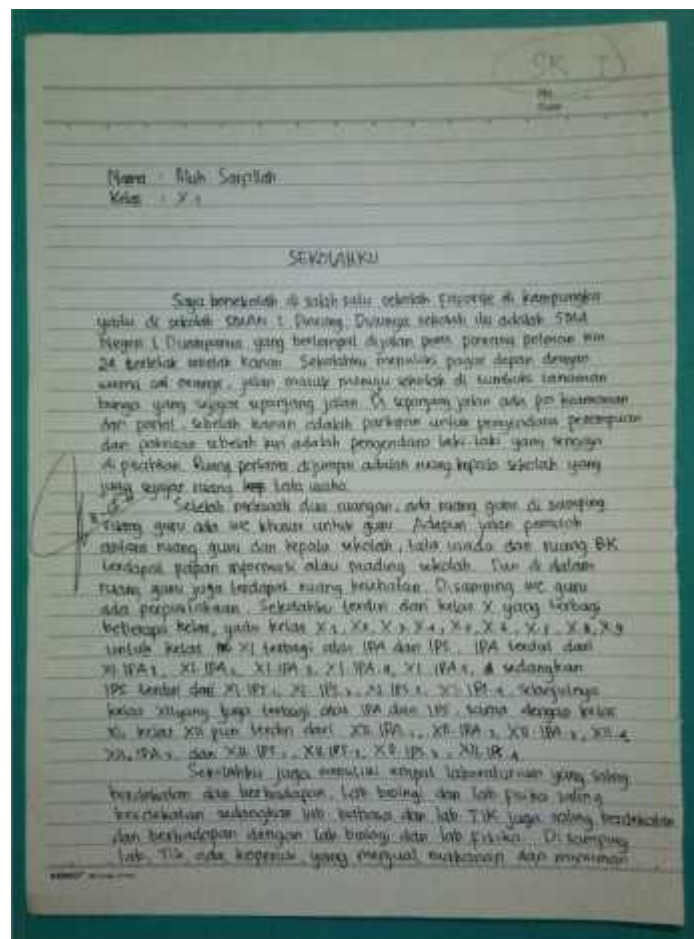 SK I
Nama : Muh Saipillah
Kelas : X 1
SEKOLAHKU
Saya bersekolah di salah satu sekolah favorite di kampungku
yaitu di sekolah SMAN 1 Pinrang. Dulunya sekolah itu adalah SMA
Negeri 1 Duampanua yang bertempat dijalan poros pinrang polman km
24 terletak sebelah kanan. Sekolahku memiliki pagar depan dengan
warna cat orange, jalan masuk menuju sekolah di tumbuhi tanaman
bunga yang sejajar sepanjang jalan. Di sepanjang jalan ada pos keamanan
dan portal, sebelah kanan adalah parkiran untuk pengendara perempuan
dan parkiran sebelah kiri adalah pengendara laki-laki yang sengaja
di pisahkan. Ruang pertama dijumpai adalah ruang kepala sekolah yang
juga sejajar ruang tata usaha.
Setelah melewati dua ruangan, ada ruang guru di samping
ruang guru ada wc khusus untuk guru. Adapun jalan pemisah
antara ruang guru dan kepala sekolah, tata usaha dan ruang BK
terdapat papan informasi atau mading sekolah. Dan di dalam
ruang guru juga terdapat ruang kesehatan. Disamping wc guru
ada perpustakaan. Sekolahku terdiri dari kelas X yang terbagi
beberapa kelas, yaitu kelas X1, X2, X3, X4, X5, X6, X7, X8, X9
untuk kelas XI terbagi atas IPA dan IPS, IPA terdiri dari
XI IPA1, XI IPA2, XI IPA3, XI IPA4, XI IPA5, sedangkan
IPS terdiri dari XI IPS1, XI IPS2, XI IPS3, XI IPS4, selanjutnya
kelas XII yang juga terbagi atas IPA dan IPS, sama dengan kelas
XI, kelas XII pun terdiri dari XII IPA1, XII IPA2, XII IPA3, XII 4
XII, IPA5, dan XII IPS1, XII IPS2, XII IPS3, XII IPS4
Sekolahku juga memiliki empat laboraturium yang saling
berdekatan dan berhadapan. Lab biologi dan lab fisika saling
berdekatan sedangkan lab bahasa dan lab TIK juga saling berdekatan
dan berhadapan dengan lab biologi dan lab fisika. Disamping
lab, TIK ada koperasi yang menjual makanan dan minuman